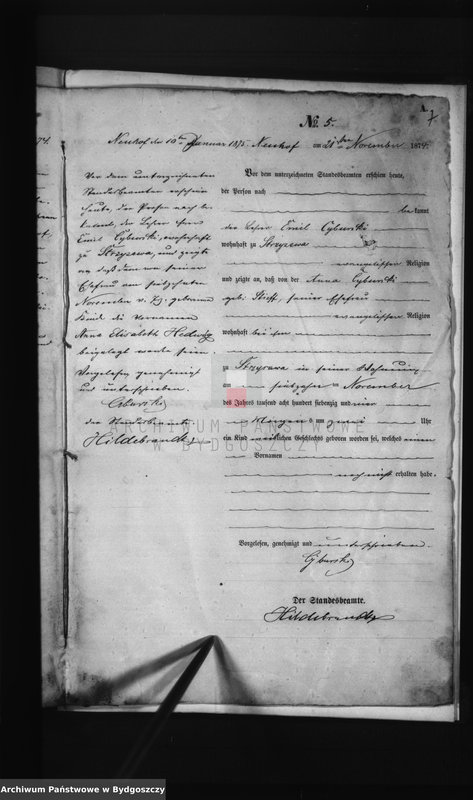 A.
7
№ 5.
Neuhof am 21ten November 1874.
Vor dem unterzeichneten Standesbeamten erschien heute,
der Person nach
bekannt
der Lehrer Emil Cyburski
wohnhaft zu Strzyzewa
evangelischer Religion
und zeigte an, daß von der Anna Cyburski
geb. seiner Ehefrau
evangelischer Religion
wohnhaft bei ihm
zu Strzyzewa in seiner Wohnung
am November
des Jahres tausend acht hundert siebenzig und vier
Morgens um Uhr
ein Kind weiblichen Geschlechts geboren worden sei, welches einen
Vornamen
noch nicht erhalten habe.
Vorgelesen, genehmigt und unterschrieben.
Cyburski
Der Standesbeamte.
Hildebrandt
Neuhof den 10ten Januar 1875.
Vor dem unterzeichneten
Standesbeamten erschien
heute, der Person nach be-
kannt, der Lehrer
Emil Cyburski, wohnhaft
zu Strzyzewa, und zeigte
an, daß dem von seiner
Ehefrau am
November v. J. geborenen
Kinde die Vornamen
Anna Elisabeth Hedwig
beigelegt worden seien.
Vorgelesen, genehmigt
und unterschrieben.
Cyburski
Der Standesbeamte
Hildebrandt
ARCHIWUM PAŃSTWOWE
W BYDGOSZCZY
Archiwum Państwowe w Bydgoszczy